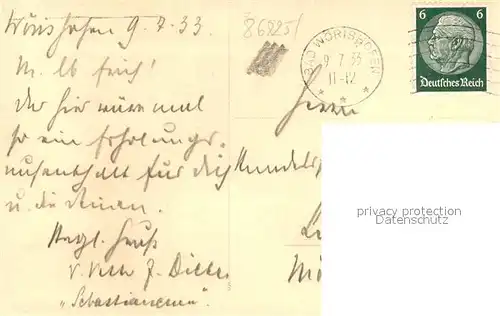 Wörishofen 9.7.33.
M. lb
Das hier wäre mal
so ein Erholungs-
aufenthalt für Dich
u. die Deinen.
Herzl. Gruß
"Sebastianeum".
86825/
BAD WÖRISHOFEN
9.7.33
11-12
6 6
Deutsches Reich
Herrn
privacy protection
Datenschutz